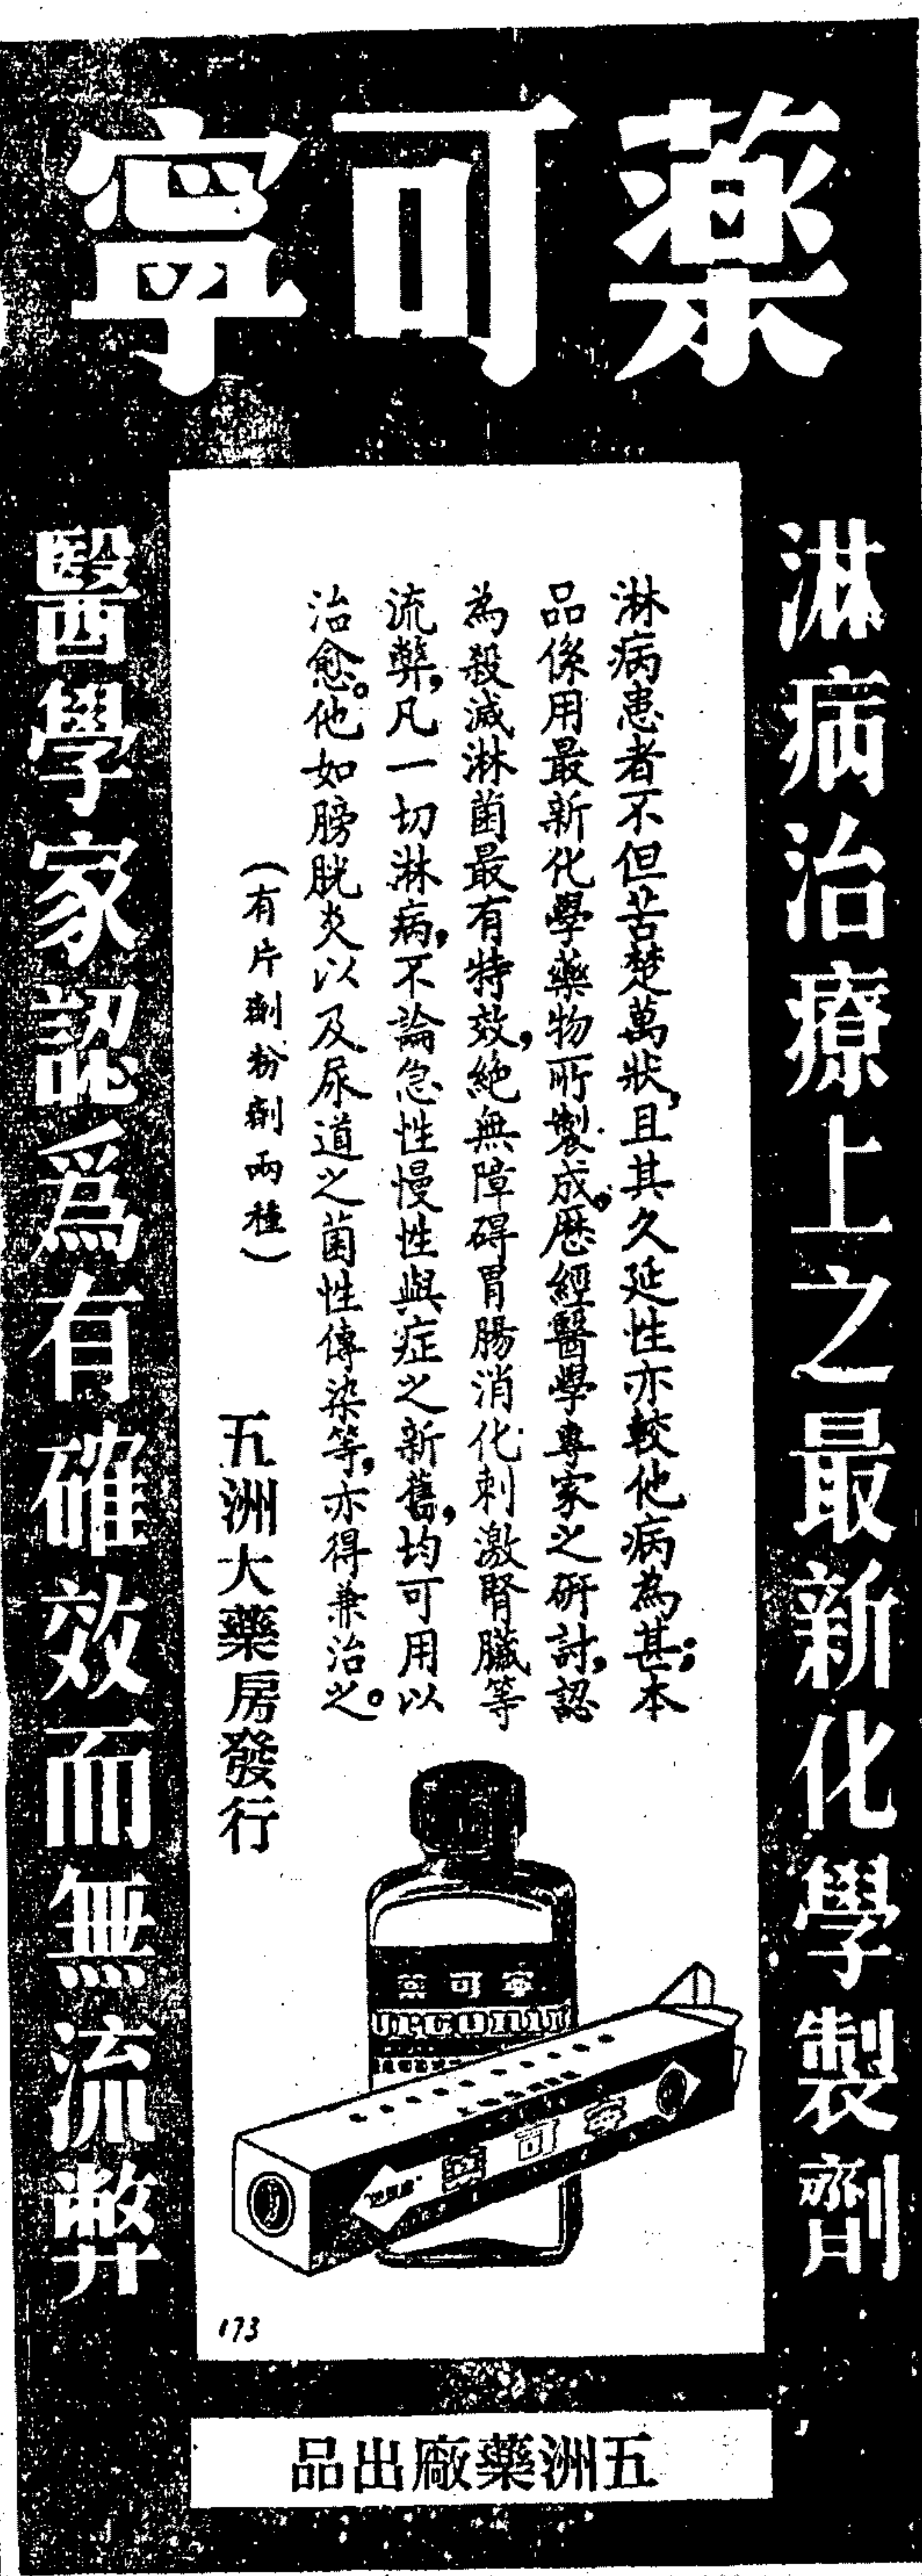 藥可寧
淋病治療上之最新化學製劑
淋病患者不但苦楚萬狀，且其久延性亦較他病為甚；本
品係用最新化學藥物所製成，歷經醫學專家之研討，認
為殺滅淋菌最有特效，絕無障碍胃腸消化刺激腎臟等
流弊，凡一切淋病，不論急性慢性與症之新舊，均可用以
治愈。他如膀胱炎以及尿道之菌性傳染等，亦得兼治之。
（有片劑粉劑兩種）
五洲大藥房發行
醫學家認爲有確效而無流弊
藥可寧
藥可寧
173
五洲藥廠出品